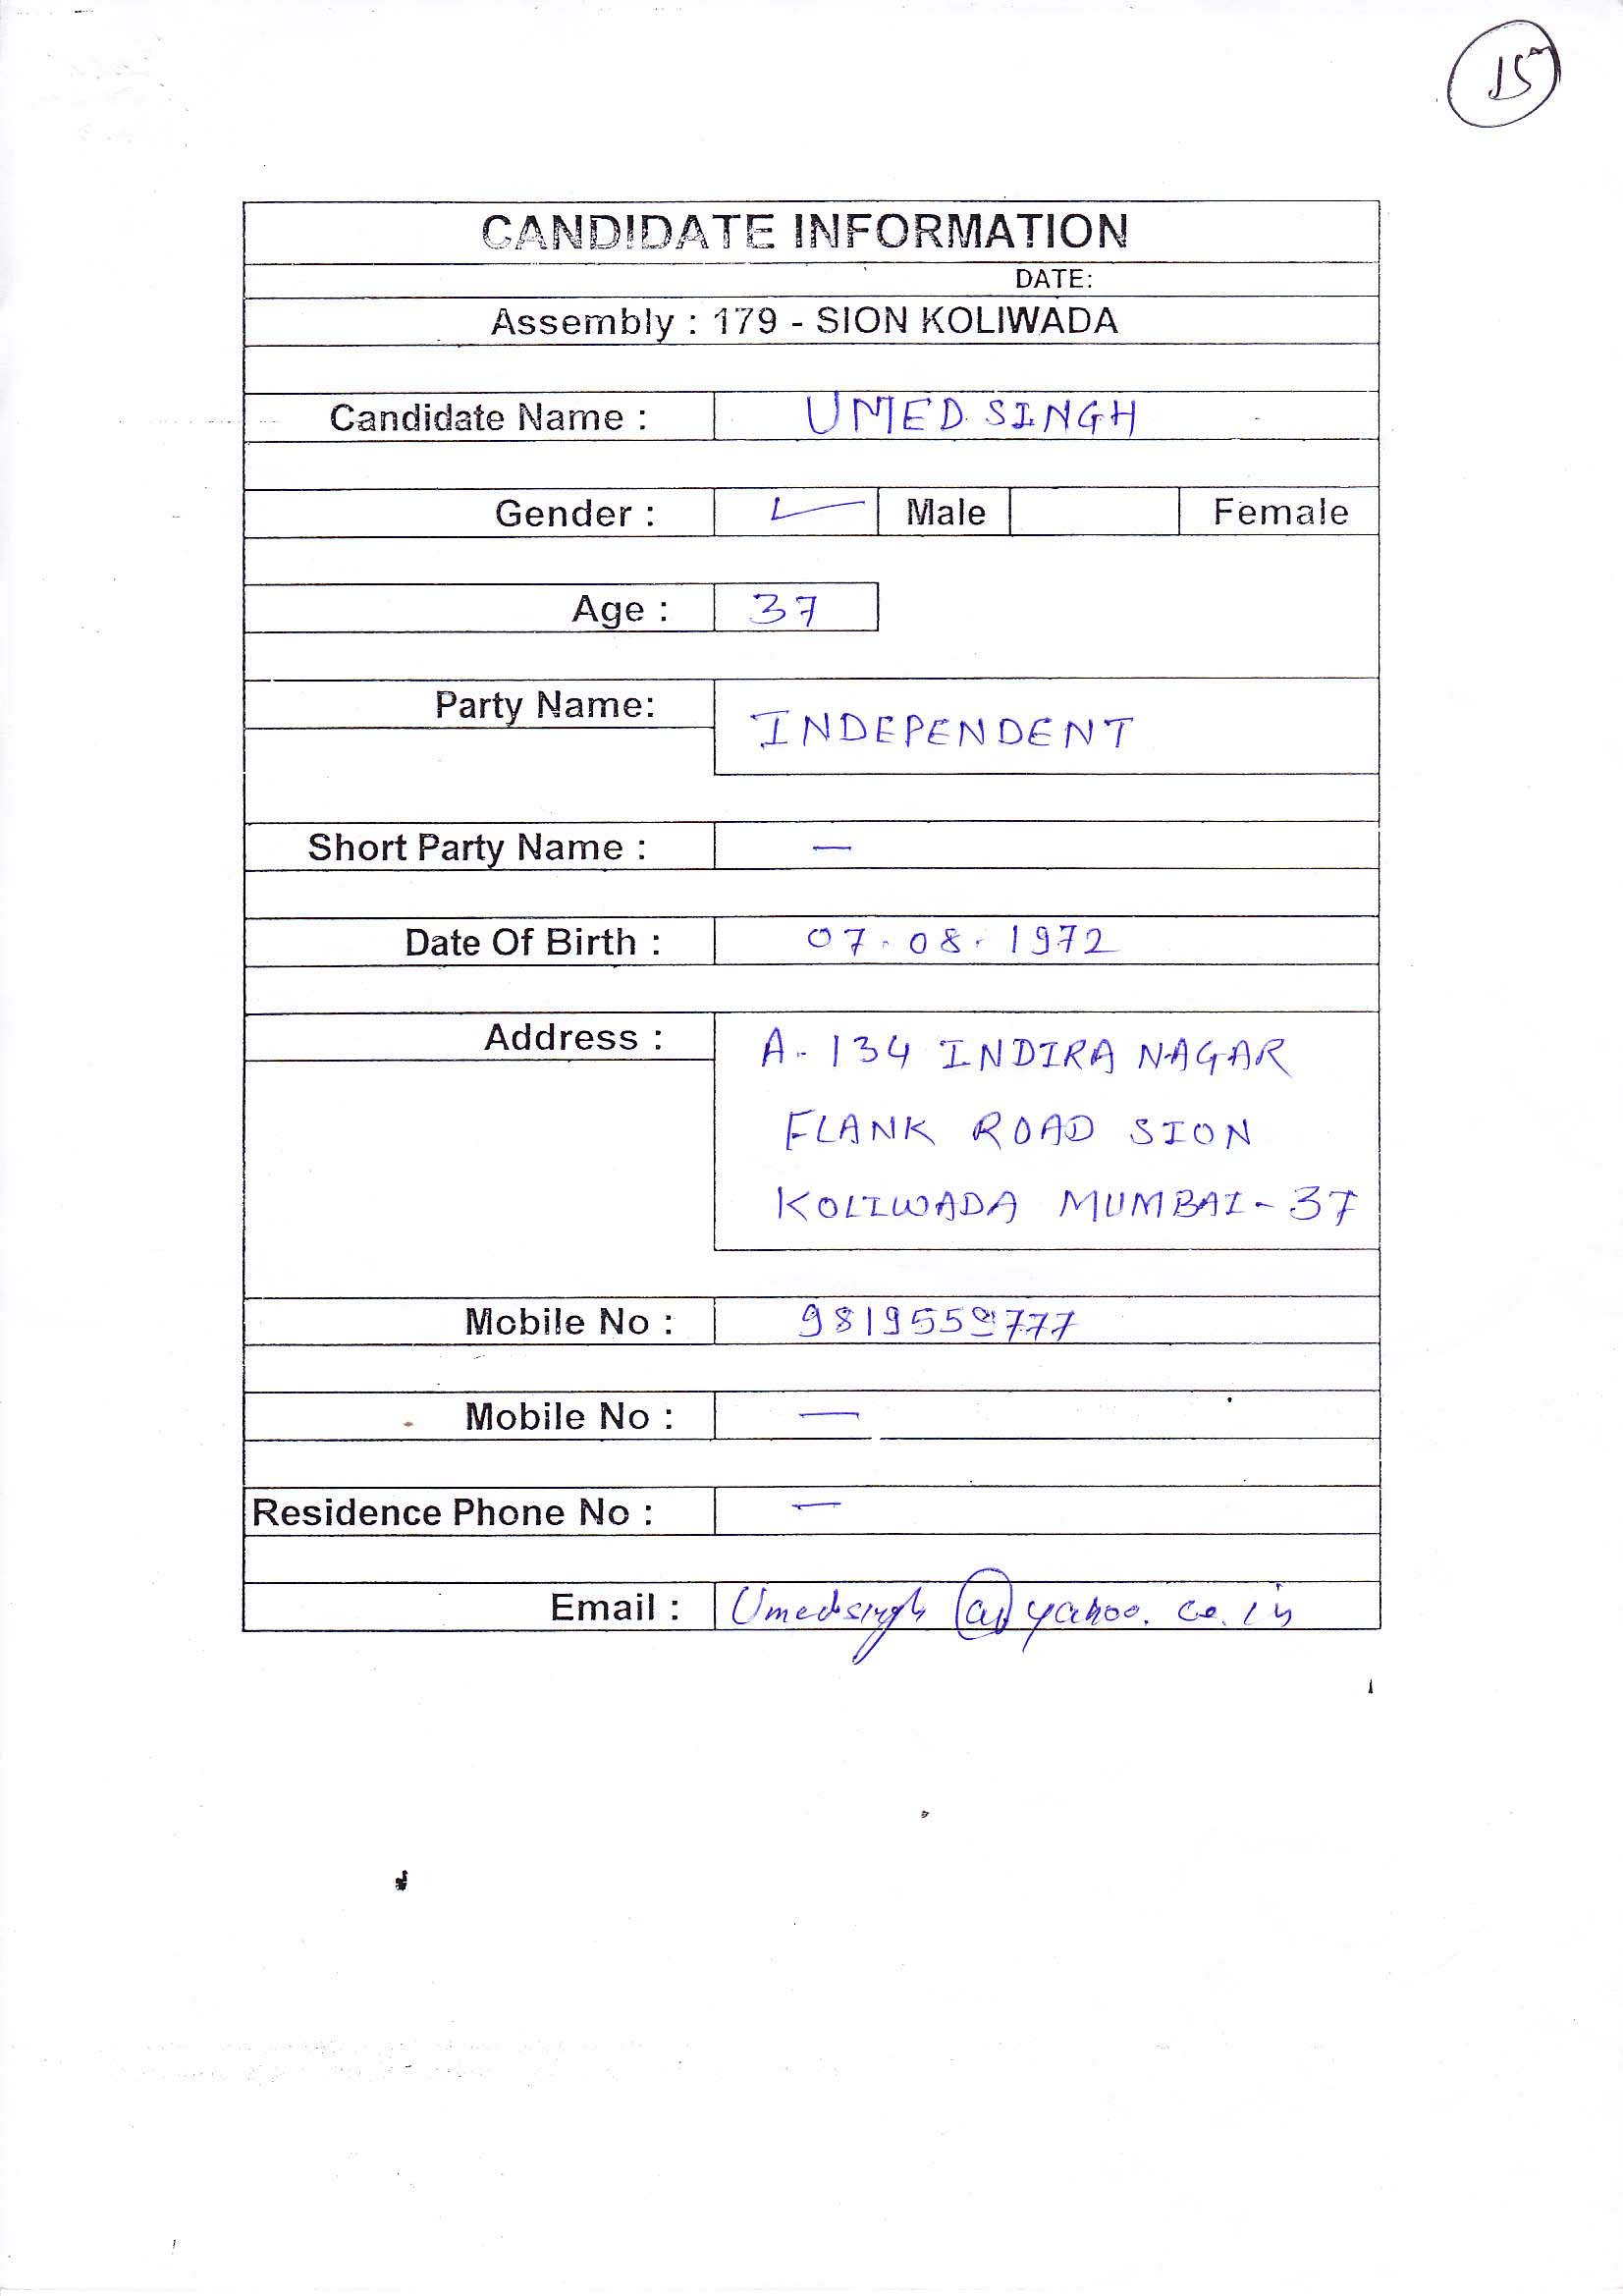 15
CANDIDATE INFORMATION
DATE:
Assembly : 179 - SION KOLIWADA
Candidate Name : UMED SINGH
Gender : Male Female
Age : 37
Party Name:
INDEPENDENT
Short Party Name : —
Date Of Birth : 07.08.1972
Address : A-134 INDIRA NAGAR
FLANK ROAD SION
KOLIWADA MUMBAI-37
Mobile No :
Mobile No : —
Residence Phone No : —
Email : Umedsingh@yahoo.co.in